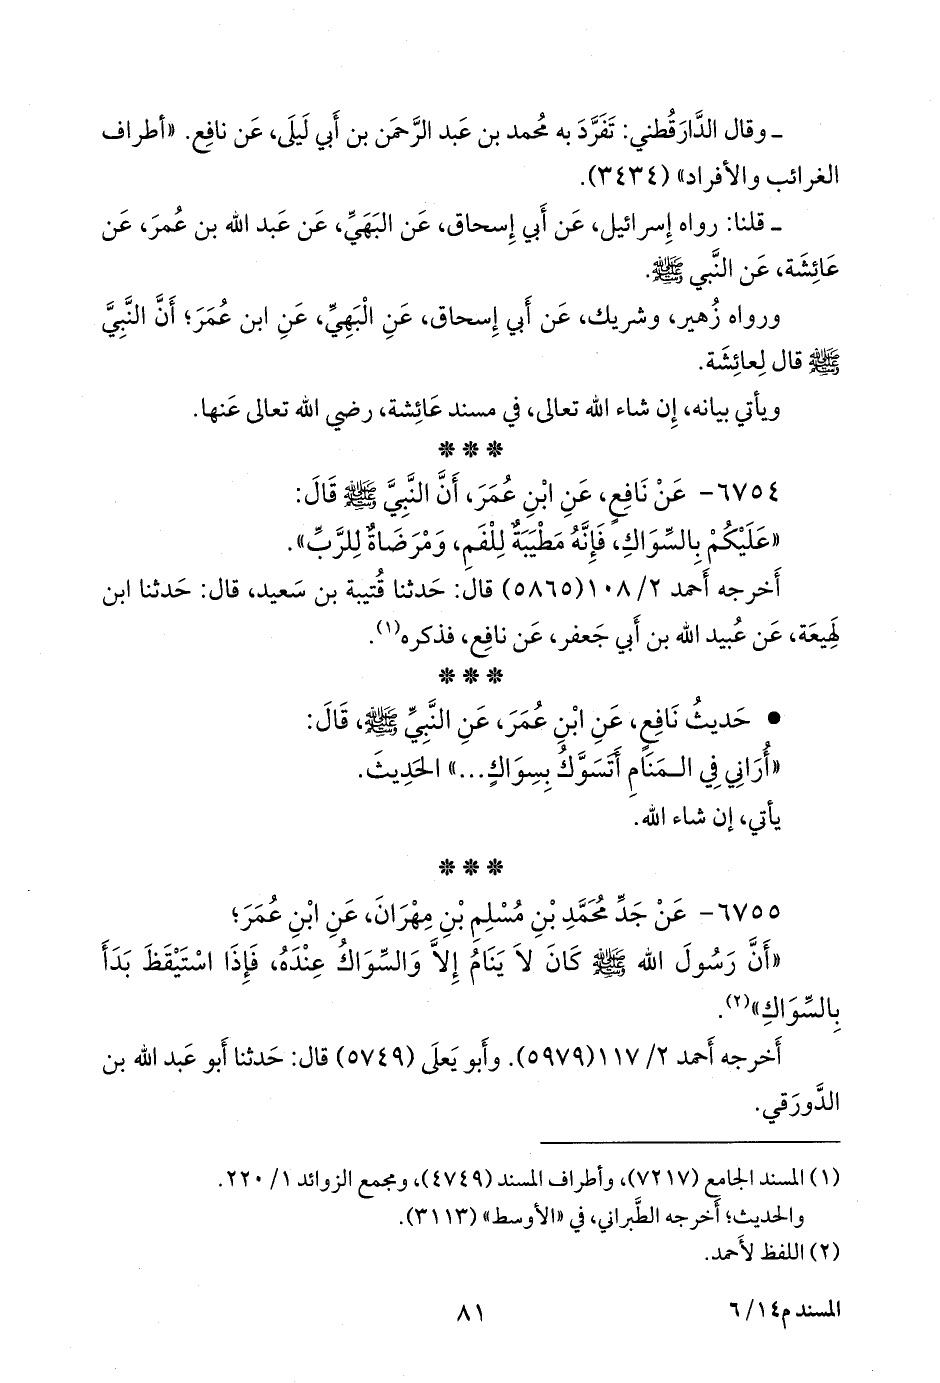 ـ وقال الدَّارَقُطني: تَفَرَّدَ به مُحمد بن عَبد الرَّحمَن بن أَبي لَيلَى، عَن نافِع. «أطراف
الغرائب والأفراد» (٣٤٣٤).
ـ قلنا: رواه إِسرائيل، عَن أَبي إِسحاق، عَن البَهَيِّ، عَن عَبد الله بن عُمرَ، عَن
عَائِشَة، عَن النَّبي ﷺ.
ورواه زُهير، وشريك، عَن أَبي إِسحاق، عَنِ الْبَهِيِّ، عَنِ ابن عُمَرَ؛ أَنَّ النَّبِيَّ
ﷺ قال لِعائِشَة.
ويأتي بيانه، إِن شاء الله تعالى، في مسند عَائِشة، رضي الله تعالى عَنها.
***
٦٧٥٤- عَنْ نَافِعٍ، عَنِ ابْنِ عُمَرَ، أَنَّ النَّبِيَّ ﷺ قَالَ:
«عَلَيْكُمْ بِالسِّوَاكِ، فَإِنَّهُ مَطْيَبَةٌ لِلْفَمِ، وَمْرَضَاةٌ لِلرَّبِّ».
أَخرجه أَحمد ٢/ ١٠٨(٥٨٦٥) قال: حَدثنا قُتيبة بن سَعيد، قال: حَدثنا ابن
لَهِيعَة، عَن عُبيد الله بن أَبي جَعفر، عَن نافِع، فذكره(١).
***
• حَديثُ نَافِعٍ، عَنِ ابْنِ عُمَرَ، عَنِ النَّبِيِّ ﷺ، قَالَ:
«أُرَانِي فِي الـمَنَامِ أَتَسَوَّكُ بِسِوَاكٍ...» الحَدِيثَ.
يأتي، إِن شاء الله.
***
٦٧٥٥- عَنْ جَدِّ مُحَمَّدِ بْنِ مُسْلِمِ بْنِ مِهْرَانَ، عَنِ ابْنِ عُمَرَ؛
«أَنَّ رَسُولَ الله ﷺ كَانَ لاَ يَنَامُ إِلاَّ وَالسِّوَاكُ عِنْدَهُ، فَإِذَا اسْتَيْقَظَ بَدَأَ
بِالسِّوَاكِ»(٢).
أَخرجه أَحمد ٢/ ١١٧(٥٩٧٩). وأَبو يَعلَى (٥٧٤٩) قال: حَدثنا أَبو عَبد الله بن
الدَّورَقي.
(١) المسند الجامع (٧٢١٧)، وأطراف المسند (٤٧٤٩)، ومجمع الزوائد ١/ ٢٢٠.
والحديث؛ أَخرجه الطَّبراني، في «الأوسط» (٣١١٣).
(٢) اللفظ لأَحمد.
المسند م١٤/ ٦
٨١